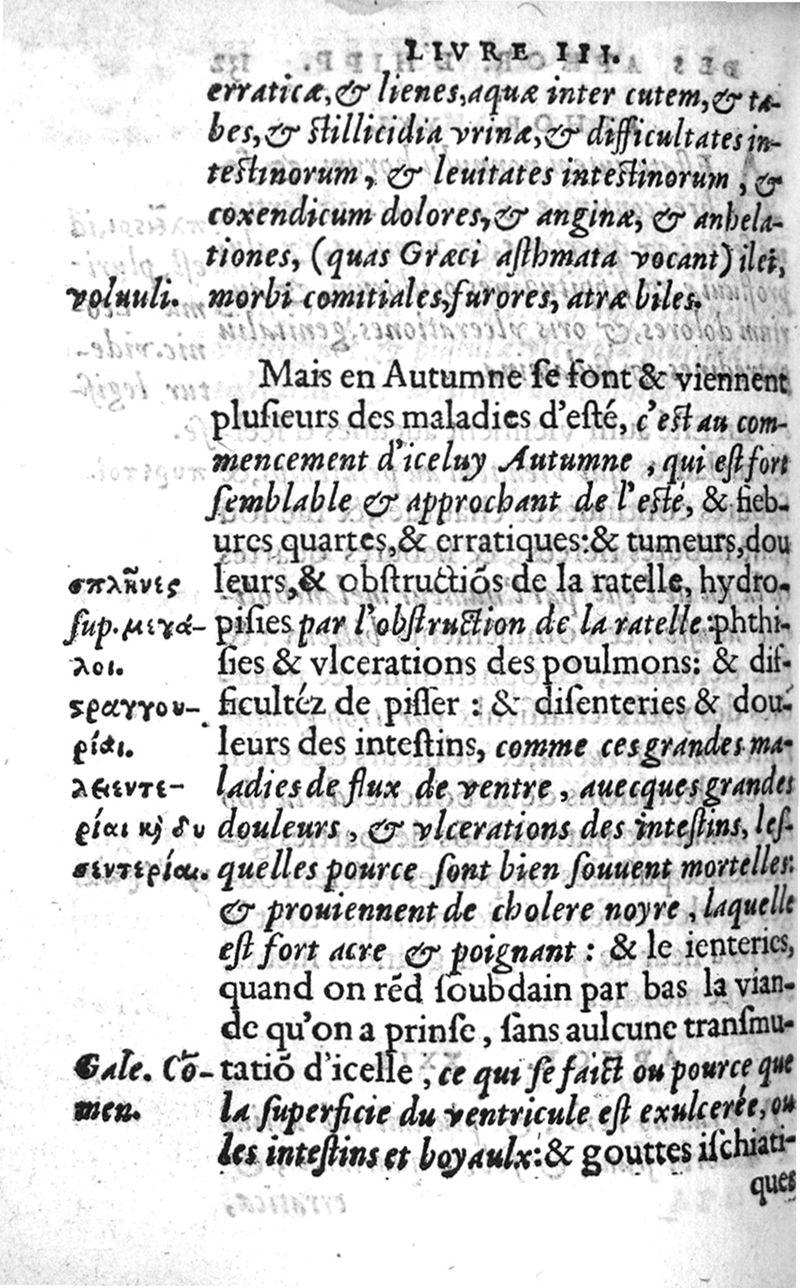 LIVRE III.
erraticæ, & lienes, aquæ inter cutem, & ta-
bes, & ſtillicidia vrinæ, & difficultates in-
teſtinorum, & leuitates inteſtinorum, &
coxendicum dolores, & anginæ, & anhela-
tiones, (quas Græci aſthmata vocant) ilei,
voluuli. morbi comitiales, furores, atræ biles.
Mais en Autumne ſe font & viennent
pluſieurs des maladies d'eſté, c'eſt au com-
mencement d'iceluy Autumne, qui eſt fort
ſemblable & approchant de l'eſté, & fieb-
ures quartes, & erratiques: & tumeurs, dou
σπλῆνες leurs, & obſtructiõs de la ratelle, hydro-
ſup. μεγά- piſies par l'obſtruction de la ratelle: phthi-
λοι. ſies & vlcerations des poulmons: & dif-
ϛραγγου- ficultéz de piſſer: & diſenteries & dou-
ρίαι. leurs des inteſtins, comme ces grandes ma-
λειεντε- ladies de flux de ventre, auecques grandes
ρίαι κỳ δυ douleurs, & vlcerations des inteſtins, leſ-
σεντερίαι. quelles pource ſont bien ſouuent mortelles:
& prouiennent de cholere noyre, laquelle
eſt fort acre & poignant: & le ienteries,
quand on rẽd ſoubdain par bas la vian-
de qu'on a prinſe, ſans aulcune tranſmu-
Gale. Cõ- tatiõ d'icelle, ce qui ſe faict ou pource que
men. la ſuperficie du ventricule eſt exulcerée, ou
les inteſtins et boyaulx: & gouttes iſchiati-
ques